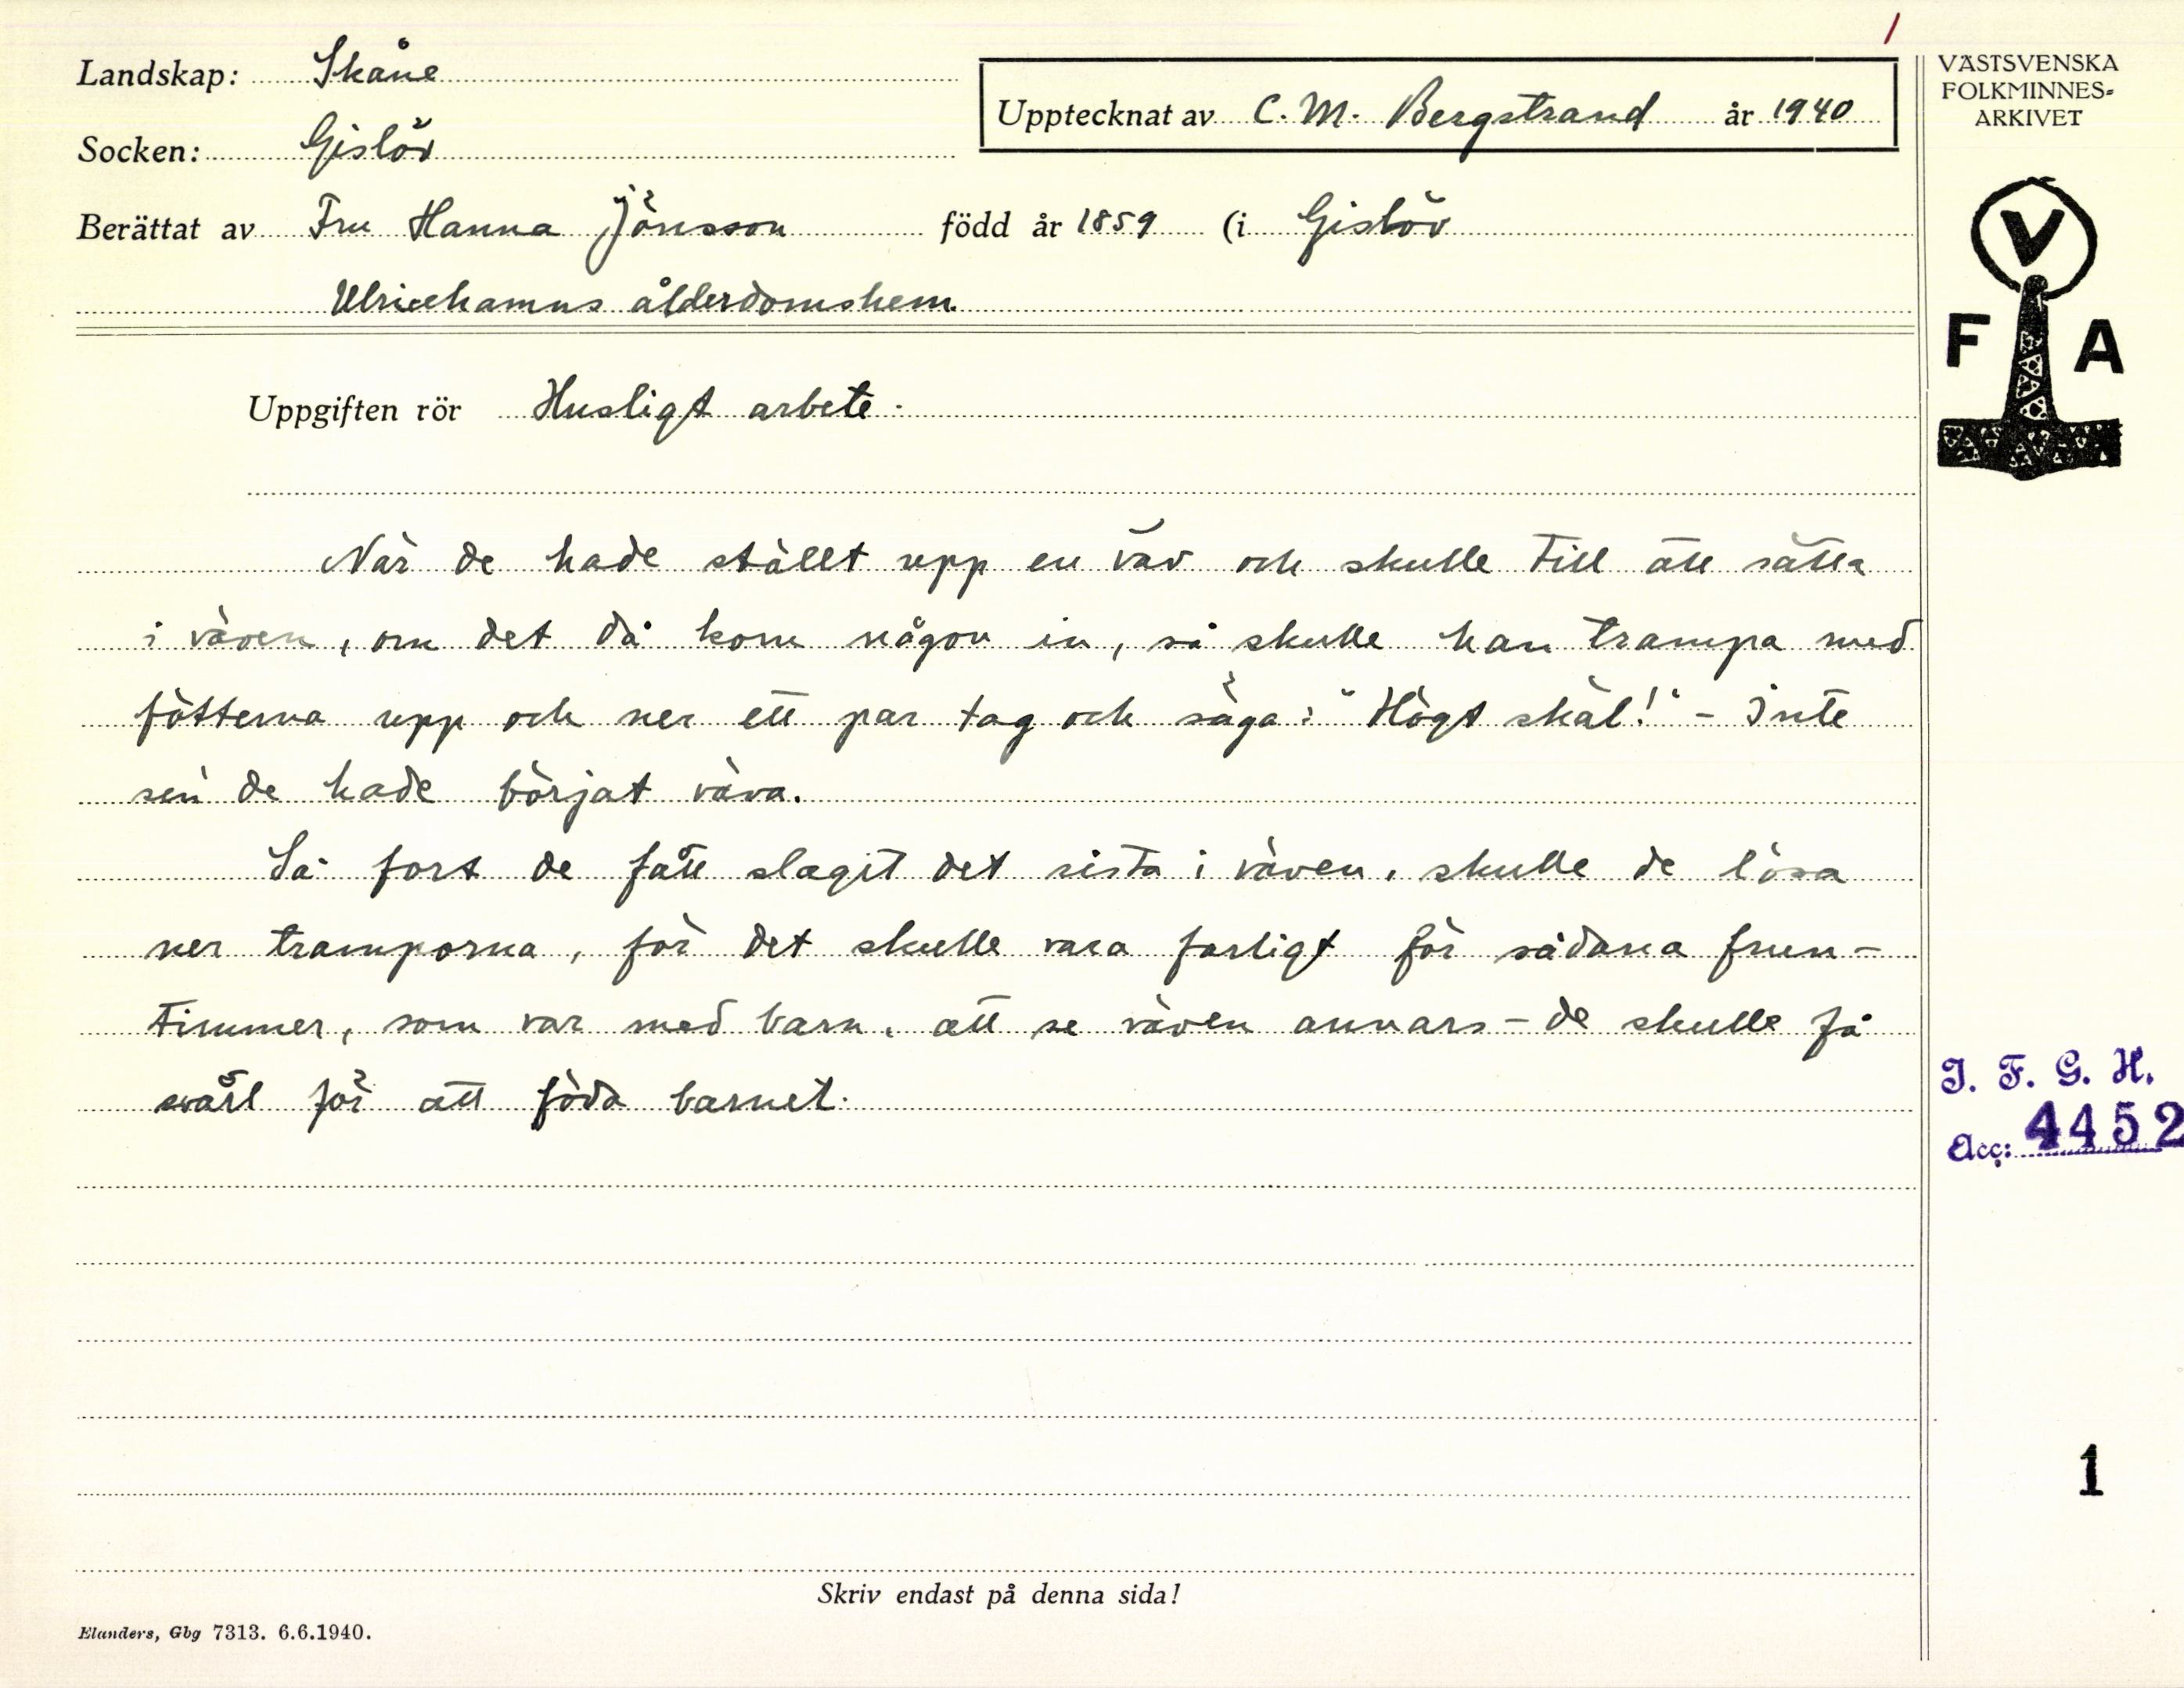 1
Landskap: Skåne
Upptecknat av C. M. Bergstrand år 1940
Socken: Gislöv
Berättat av Fru Hanna Jönsson född år 1859 (i Gislöv
Ulricehamns ålderdomshem.
VÄSTSVENSKA
FOLKMINNES-
ARKIVET
V
F A
Uppgiften rör Husligt arbete.
När de hade ställt upp en väv och skulle till att sätta
i väven, om det då kom någon in, så skulle han trampa med
fötterna upp och ner ett par tag och säga: "Högt skäl!" - Inte
sen de hade börjat väva.
Så fort de fått slagit det sista i väven, skulle de lösa
ner tramporna, för det skulle vara farligt för sådana frun-
timmer, som var med barn, att se väven annars - de skulle få
svårt för att föda barnet.
I. F. G. H.
Acc: 4452
1
Skriv endast på denna sida!
Elanders, Gbg 7313. 6.6.1940.